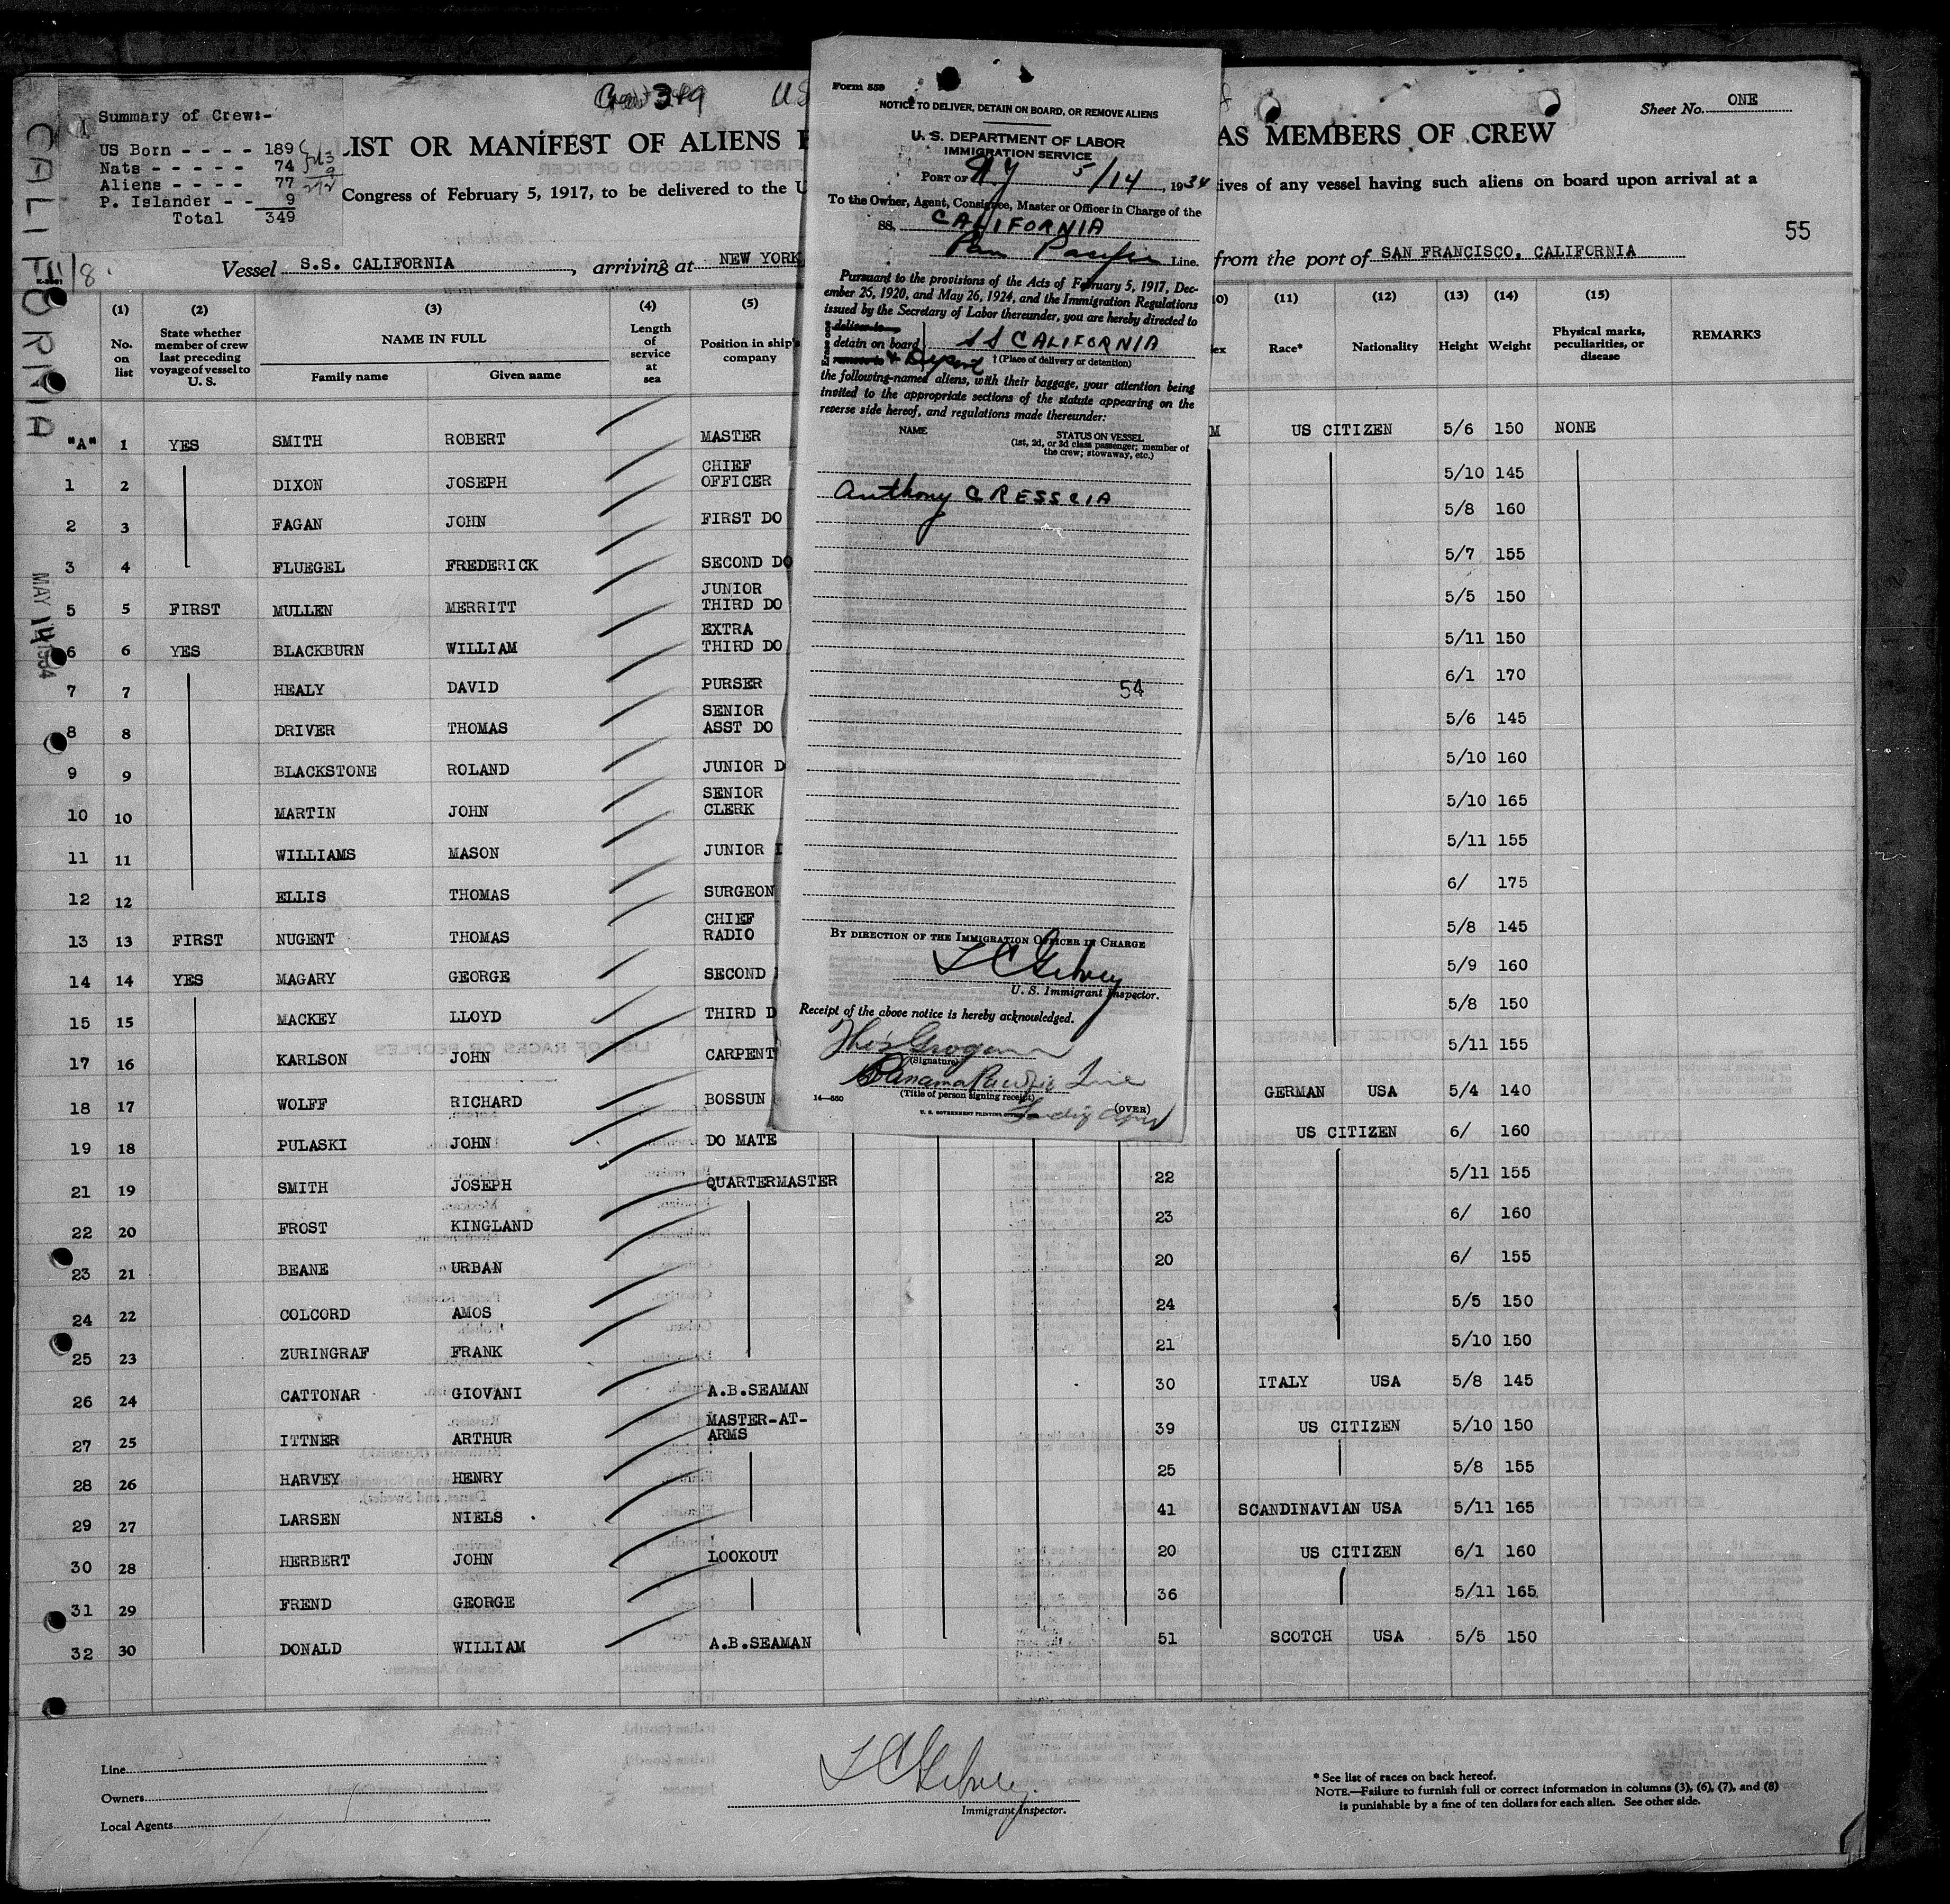 Summary of Crew:-
US Born - - - - 189
Nats - - - - - 74
Aliens - - - - 77
P. Islander - - 9
Total 349
CALIFORNIA
MAY 14 1934
349 US
LIST OR MANIFEST OF ALIENS E
AS MEMBERS OF CREW
Sheet No. ONE
Congress of February 5, 1917, to be delivered to the U
ives of any vessel having such aliens on board upon arrival at a
55
Vessel S.S. CALIFORNIA, arriving at NEW YORK
from the port of SAN FRANCISCO, CALIFORNIA
Form 559
NOTICE TO DELIVER, DETAIN ON BOARD, OR REMOVE ALIENS
U. S. DEPARTMENT OF LABOR
IMMIGRATION SERVICE
PORT OF NY 5/14, 1934
To the Owner, Agent, Consignee, Master or Officer in Charge of the
SS. CALIFORNIA
Pan Pacific Line.
Pursuant to the provisions of the Acts of February 5, 1917, Dec-
ember 26, 1920, and May 26, 1924, and the Immigration Regulations
issued by the Secretary of Labor thereunder, you are hereby directed to
Erase one
deliver to
detain on board SS CALIFORNIA
remove to & Deport †(Place of delivery or detention)
the following-named aliens, with their baggage, your attention being
invited to the appropriate sections of the statute appearing on the
reverse side hereof, and regulations made thereunder:
NAME STATUS ON VESSEL
(1st, 2d, or 3d class passenger; member of
the crew; stowaway, etc.)
Anthony CRESSCIA
54
BY DIRECTION OF THE IMMIGRATION OFFICER IN CHARGE
U. S. Immigrant Inspector.
Receipt of the above notice is hereby acknowledged.
Thos Grogan
(Signature)
Panama Pacific Line
(Title of person signing receipt)
14—560
U. S. GOVERNMENT PRINTING OFFICE
(OVER)
(1) (2) (3) (4) (5) (11) (12) (13) (14) (15)
No. on list
State whether member of crew last preceding voyage of vessel to U. S.
NAME IN FULL
Family name Given name
Length of service at sea
Position in ship's company
Race* Nationality Height Weight
Physical marks, peculiarities, or disease
REMARKS
"A" 1 YES SMITH ROBERT MASTER M US CITIZEN 5/6 150 NONE
1 2 DIXON JOSEPH CHIEF OFFICER 5/10 145
2 3 FAGAN JOHN FIRST DO 5/8 160
3 4 FLUEGEL FREDERICK SECOND DO 5/7 155
5 5 FIRST MULLEN MERRITT JUNIOR THIRD DO 5/5 150
6 6 YES BLACKBURN WILLIAM EXTRA THIRD DO 5/11 150
7 7 HEALY DAVID PURSER 6/1 170
8 8 DRIVER THOMAS SENIOR ASST DO 5/6 145
9 9 BLACKSTONE ROLAND JUNIOR D 5/10 160
10 10 MARTIN JOHN SENIOR CLERK 5/10 165
11 11 WILLIAMS MASON JUNIOR 5/11 155
12 12 ELLIS THOMAS SURGEON 6/ 175
13 13 FIRST NUGENT THOMAS CHIEF RADIO 5/8 145
14 14 YES MAGARY GEORGE SECOND 5/9 160
15 15 MACKEY LLOYD THIRD D 5/8 150
17 16 KARLSON JOHN CARPENT 5/11 155
18 17 WOLFF RICHARD BOSSUN GERMAN USA 5/4 140
19 18 PULASKI JOHN DO MATE US CITIZEN 6/ 160
21 19 SMITH JOSEPH QUARTERMASTER 22 5/11 155
22 20 FROST KINGLAND 23 6/ 160
23 21 BEANE URBAN 20 6/ 155
24 22 COLCORD AMOS 24 5/5 150
25 23 ZURINGRAF FRANK 21 5/10 150
26 24 CATTONAR GIOVANI A.B.SEAMAN 30 ITALY USA 5/8 145
27 25 ITTNER ARTHUR MASTER-AT-ARMS 39 US CITIZEN 5/10 150
28 26 HARVEY HENRY 25 5/8 155
29 27 LARSEN NIELS 41 SCANDINAVIAN USA 5/11 165
30 28 HERBERT JOHN LOOKOUT 20 US CITIZEN 6/1 160
31 29 FREND GEORGE 36 5/11 165
32 30 DONALD WILLIAM A.B.SEAMAN 51 SCOTCH USA 5/5 150
Line
Owners
Local Agents
Immigrant Inspector.
* See list of races on back hereof.
NOTE.—Failure to furnish full or correct information in columns (3), (6), (7), and (8)
is punishable by a fine of ten dollars for each alien. See other side.